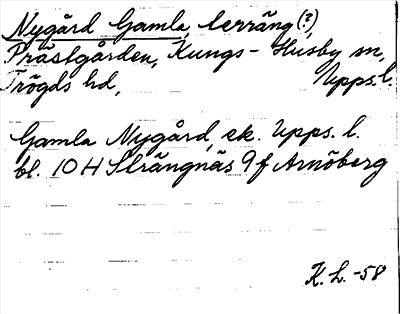 Nygård Gamla, terräng (?)
Prästgården, Kungs-Husby sn,
Trögds hd, Upps. l.
Gamla Nygård, ek. Upps. l.
bl. 10 H Strängnäs 9 f Arnöberg
K. L. -58